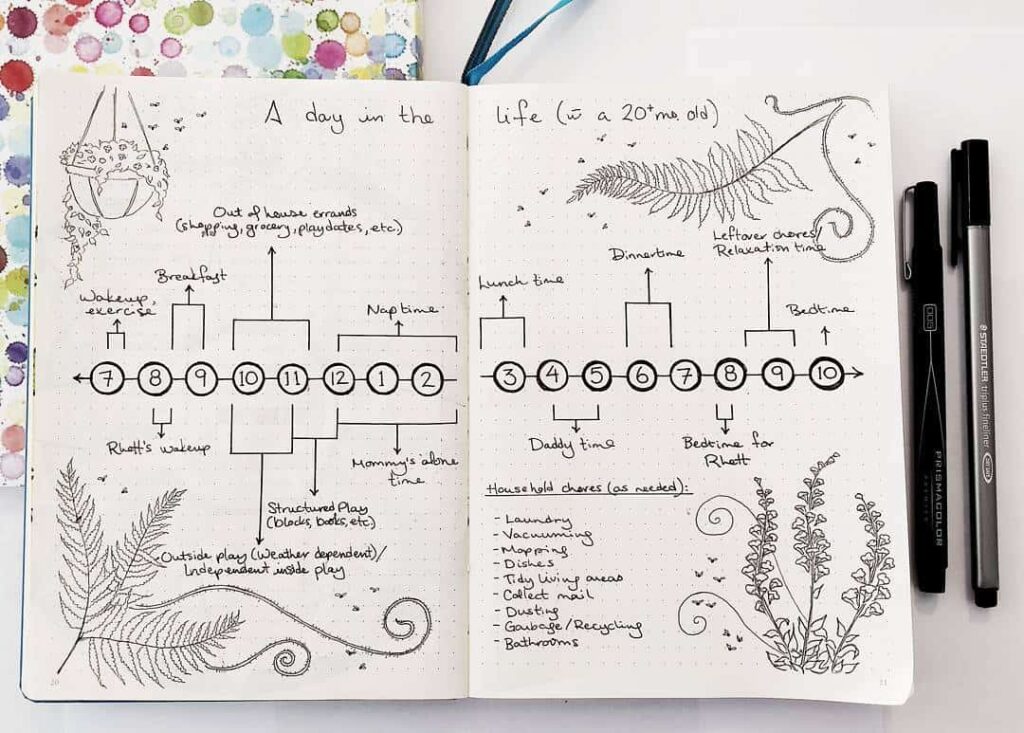 A day in the life (w̄ a 20+ mo. old)
Out of house errands
(shopping, grocery, playdates, etc.)
Breakfast
Wakeup,
exercise
Nap time
7 8 9 10 11 12 1 2
Rhett's wakeup
Mommy's alone
time
Structured Play
(blocks, books, etc)
Outside play (Weather dependent)/
Independent inside play
20
Leftover chores/
Relaxation time
Dinnertime
Lunch time
Bedtime
3 4 5 6 7 8 9 10
Daddy time
Bedtime for
Rhett
Household chores (as needed):
- Laundry
- Vacuuming
- Mopping
- Dishes
- Tidy living areas
- Collect mail
- Dusting
- Garbage/Recycling
- Bathrooms
21
005
PRISMACOLOR
PREMIER
STAEDTLER triplus fineliner